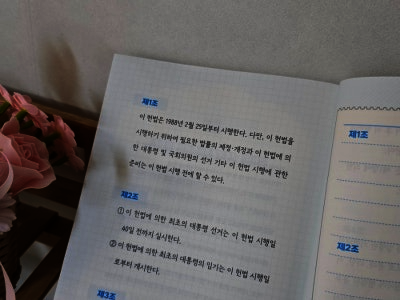 제1조
이 헌법은 1988년 2월 25일부터 시행한다. 다만, 이 헌법을
시행하기 위하여 필요한 법률의 제정·개정과 이 헌법에 의
한 대통령 및 국회의원의 선거 기타 이 헌법 시행에 관한
준비는 이 헌법 시행 전에 할 수 있다.
제2조
① 이 헌법에 의한 최초의 대통령 선거는 이 헌법 시행일
40일 전까지 실시한다.
② 이 헌법에 의한 최초의 대통령의 임기는 이 헌법 시행일
로부터 개시한다.
제3조
제1조
제2조